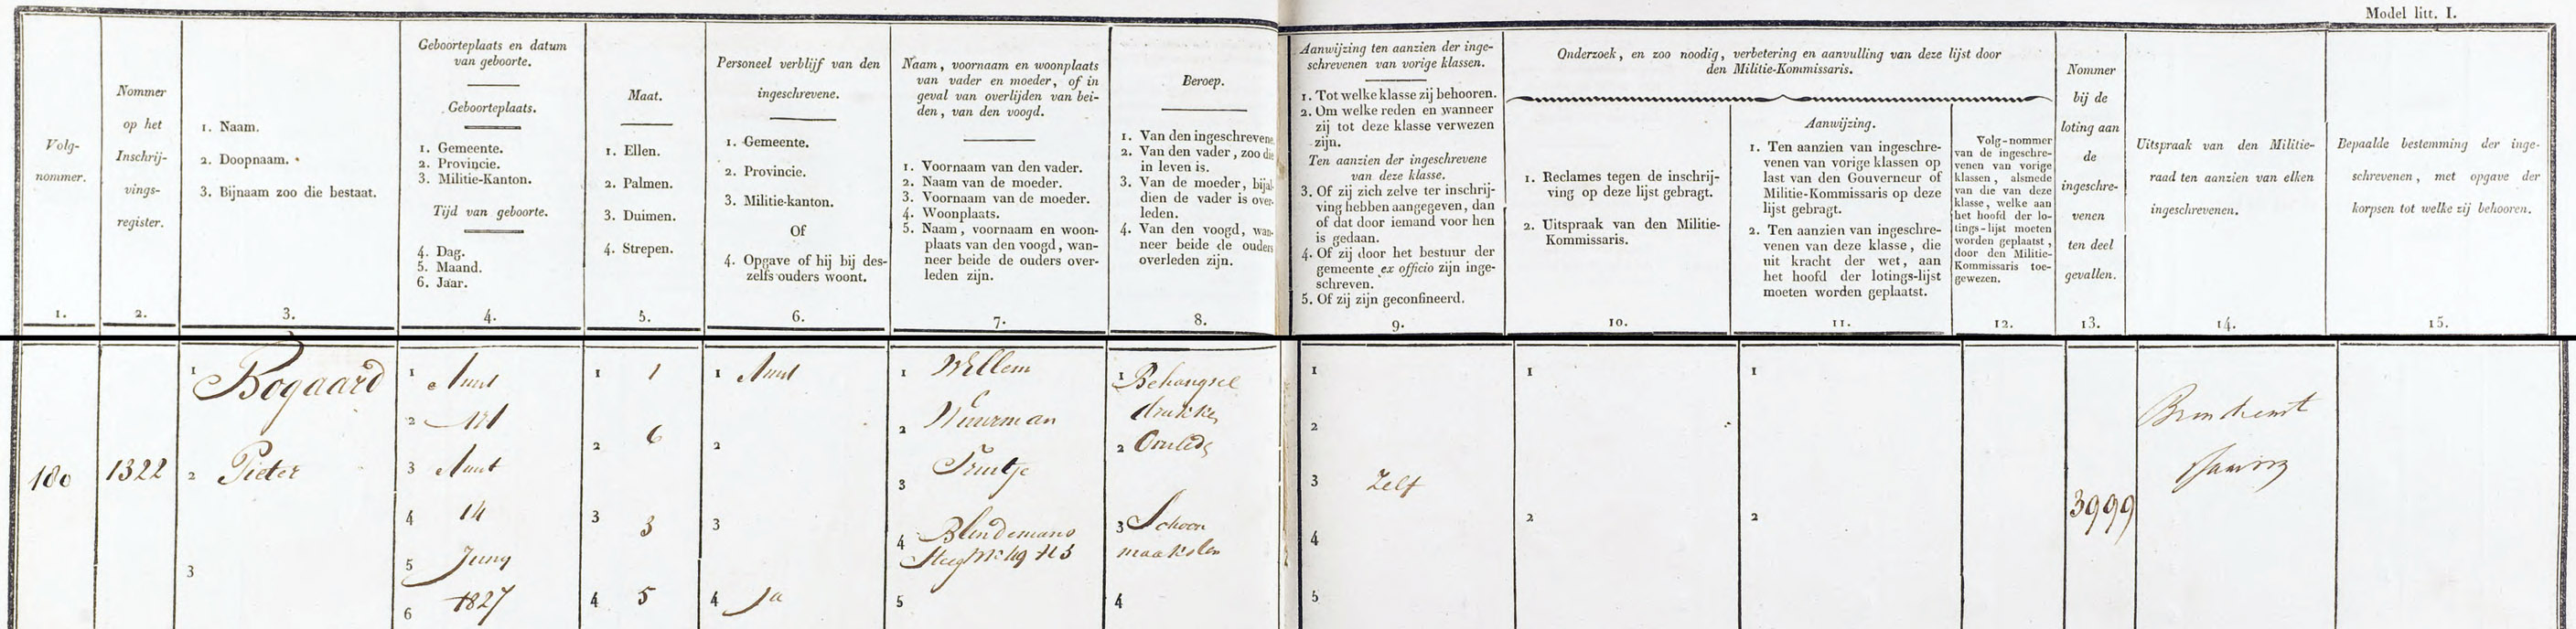 Model litt. I.
Volg-
nommer.
1.
Nommer
op het
Inschrij-
vings-
register.
2.
1. Naam.
2. Doopnaam.
3. Bijnaam zoo die bestaat.
3.
Geboorteplaats en datum
van geboorte.
Geboorteplaats.
1. Gemeente.
2. Provincie.
3. Militie-Kanton.
Tijd van geboorte.
4. Dag.
5. Maand.
6. Jaar.
4.
Maat.
1. Ellen.
2. Palmen.
3. Duimen.
4. Strepen.
5.
Personeel verblijf van den
ingeschrevene.
1. Gemeente.
2. Provincie.
3. Militie-kanton.
Of
4. Opgave of hij bij des-
zelfs ouders woont.
6.
Naam, voornaam en woonplaats
van vader en moeder, of in
geval van overlijden van bei-
den, van den voogd.
1. Voornaam van den vader.
2. Naam van de moeder.
3. Voornaam van de moeder.
4. Woonplaats.
5. Naam, voornaam en woon-
plaats van den voogd, wan-
neer beide de ouders over-
leden zijn.
7.
Beroep.
1. Van den ingeschrevene
2. Van den vader, zoo die
in leven is.
3. Van de moeder, bijal-
dien de vader is over-
leden.
4. Van den voogd, wan-
neer beide de ouders
overleden zijn.
8.
Aanwijzing ten aanzien der inge-
schrevenen van vorige klassen.
1. Tot welke klasse zij behooren.
2. Om welke reden en wanneer
zij tot deze klasse verwezen
zijn.
Ten aanzien der ingeschrevene
van deze klasse.
3. Of zij zich zelve ter inschrij-
ving hebben aangegeven, dan
of dat door iemand voor hen
is gedaan.
4. Of zij door het bestuur der
gemeente ex officio zijn inge-
schreven.
5. Of zij zijn geconfineerd.
9.
Onderzoek, en zoo noodig, verbetering en aanvulling van deze lijst door
den Militie-Kommissaris.
1. Reclames tegen de inschrij-
ving op deze lijst gebragt.
2. Uitspraak van den Militie-
Kommissaris.
10.
Aanwijzing.
1. Ten aanzien van ingeschre-
venen van vorige klassen op
last van den Gouverneur of
Militie-Kommissaris op deze
lijst gebragt.
2. Ten aanzien van ingeschre-
venen van deze klasse, die
uit kracht der wet, aan
het hoofd der lotings-lijst
moeten worden geplaatst.
11.
Volg-nommer
van de ingeschre-
venen van vorige
klassen, alsmede
van die van deze
klasse, welke aan
het hoofd der lo-
tings-lijst moeten
worden geplaatst,
door den Militie-
Kommissaris toe-
gewezen.
12.
Nommer
bij de
loting aan
de
ingeschre-
venen
ten deel
gevallen.
13.
Uitspraak van den Militie-
raad ten aanzien van elken
ingeschrevenen.
14.
Bepaalde bestemming der inge-
schrevenen, met opgave der
korpsen tot welke zij behooren.
15.
180
1322
1 Bogaard
2 Pieter
3
1 Amst
2 NH
3 Amst
4 14
5 Juny
6 1827
1 1
2 6
3 3
4 5
1 Amst
2
3
4 Ja
1 Willem
2 Wuurman
3 Truitje
4 Blindemans
Steeg
5
1 Behangsel
drukker
2 Overleds
3 Schoon
maakster
4
1
2
3 Zelf
4
5
1
2
1
2
3999